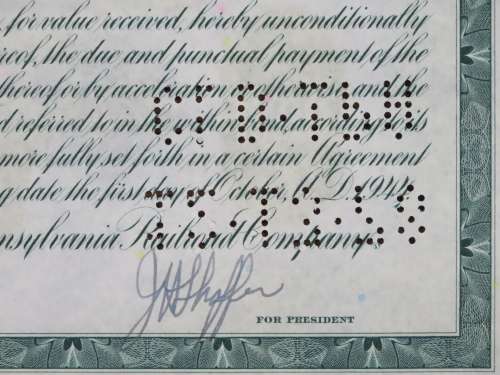 , for value received, hereby unconditionally
reof, the due and punctual payment of the
thereof or by acceleration or otherwise, and the
d referred to in the within and, according to its
more fully set forth in a certain Agreement
g date the first day of October, A.D. 1944,
nsylvania Railroad Company.
JH Shaffer
FOR PRESIDENT